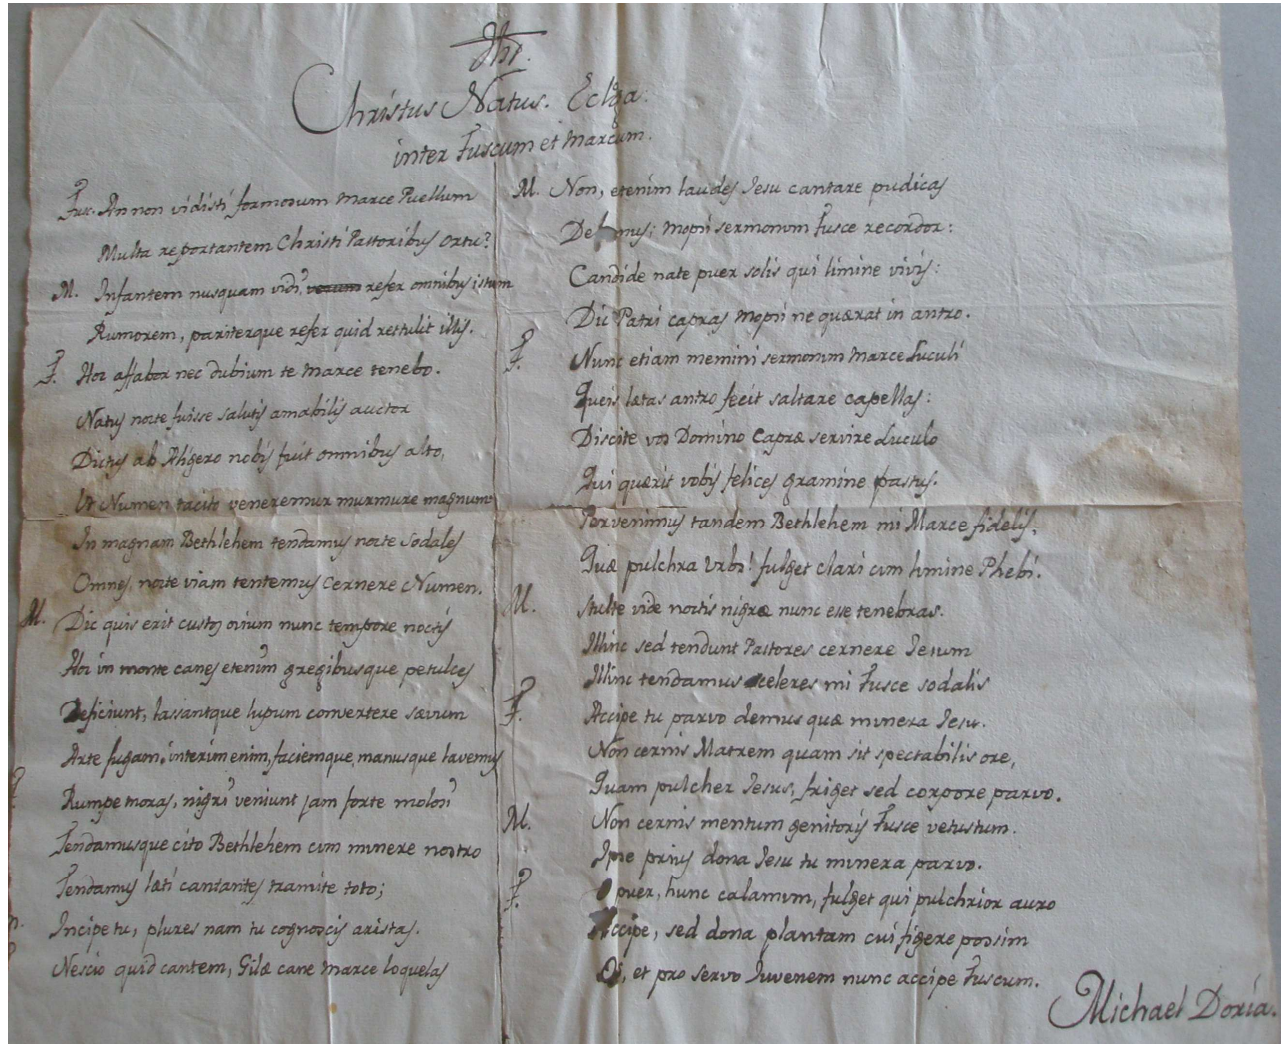 Jhs.
Christus Natus. Eclga.
inter Fuscum et Marcum.
Fus. An non vidisti formosum Marce Puellum
Multa reportantem Christi Pastoribus ortu?
M. Infantem nusquam vidi, verum refer omnibus istum
Rumorem, pariterque refer quid rettulit illis.
F. Hoc affabor nec dubium te Marce tenebo.
Natus nocte fuisse salutis amabilis auctor
Dictus ab Aligero nobis fuit omnibus alto,
Ut Numen tacito veneremur murmure magnum
In magnam Bethlehem tendamus nocte sodales
Omnes, nocte viam tentemus cernere Numen.
M. Dic quis erit custos ovium nunc tempore noctis
Hoc in monte canes etenim gregibusque petulces
Deficiunt, lassantque lupum convertere sævum
Arte fugam, interim enim, faciemque, manusque lavemus
Rumpe moras, nigri veniunt jam forte molossi
Tendamusque cito Bethlehem cum munere nostro
Tendamus læti cantantes tramite toto;
Incipe tu, plures nam tu cognoscis aristas.
Nescio quid cantem, Gilæ cane Marce loquelas
M. Non, etenim laudes Jesu cantare pudicas
Debemus; Mopsi sermonum Fusce recordor:
Candide nate puer solis qui limine vivis:
Dic Patri capras Mopsi ne quærat in antro.
F. Nunc etiam memini sermonum Marce Luculi
Queis lætas antro fecit saltare capellas:
Discite vos Domino Capræ servire Luculo
Qui quærit vobis felices gramine pastus.
Pervenimus tandem Bethlehem mi Marce fidelis,
Quæ pulchra Urbs! fulget clari cum lumine Phebi.
M. Stulte vide noctis nigræ nunc esse tenebras.
Illinc sed tendunt Pastores cernere Jesum
Illinc tendamus celeres mi Fusce sodalis
F. Accipe tu parvo demus quæ munera Jesu.
Non cernis Matrem quam sit spectabilis ore,
Quam pulcher Jesus, friget sed corpore parvo.
M. Non cernis mentum genitoris Fusce vetustum.
Ipse prius dona Jesu tu munera parvo.
F. O puer, hunc calamum, fulget qui pulchrior auro
Accipe, sed dona plantam cui figere possim
Os, et pro servo Juvenem nunc accipe Fuscum.
Michael Doria.